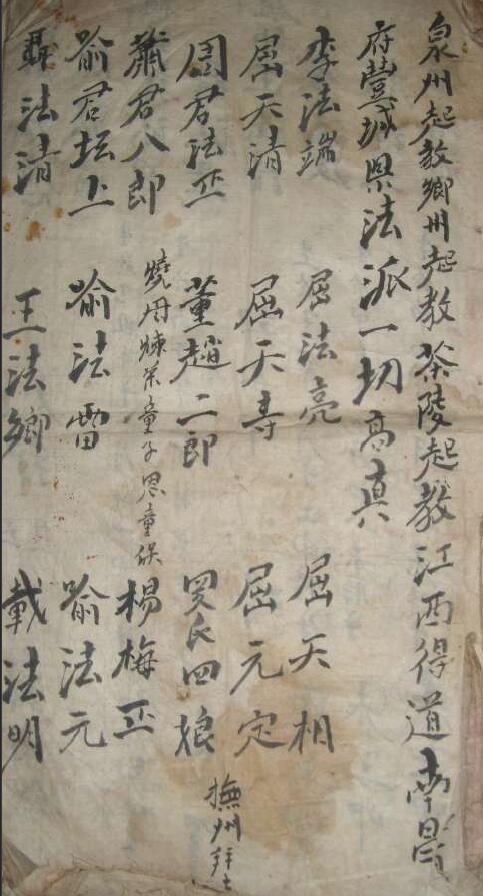 泉州起教鄉州起教茶陵起教江西得道南昌
府豐城県法派一切高真
李法端 屈法亮 屈天相
屈天清 屈天寿 屈元定
周君法 董趙二郎 罗氏四娘 撫州
蕭君八郎 燒丹煉 童子思童 楊梅
喻君坛上 喻法雷 喻法元
聶法清 王法鄉 戴法明